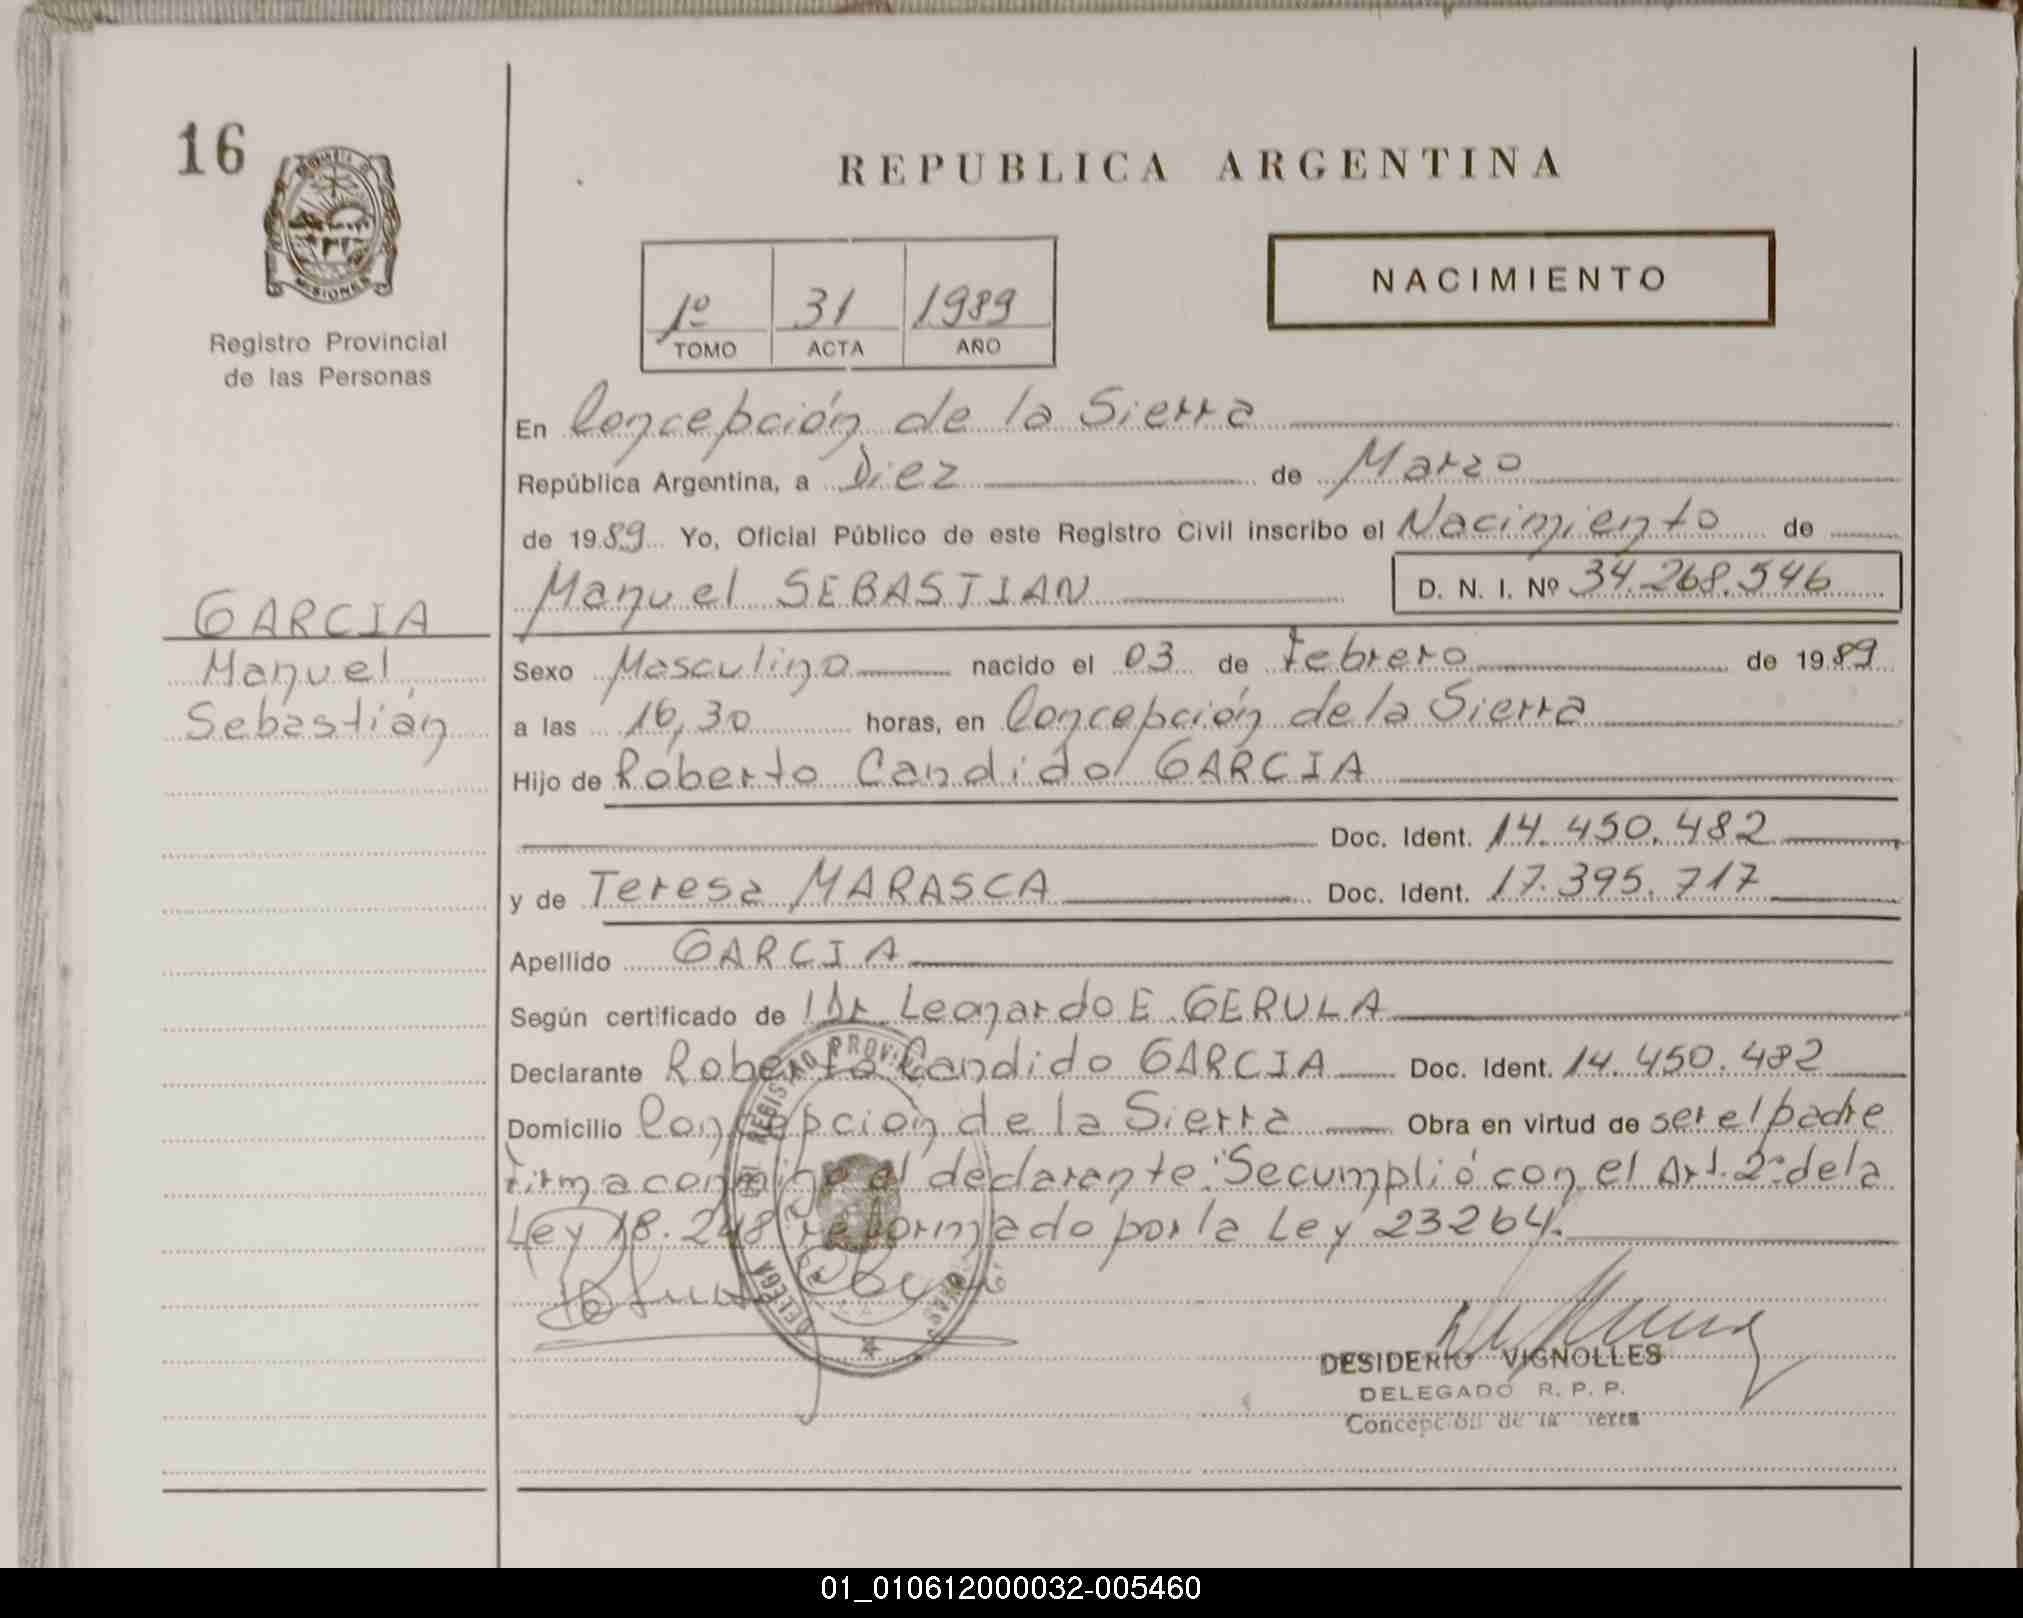 16
PROVINCIA DE
MISIONES
Registro Provincial
de las Personas
REPUBLICA ARGENTINA
NACIMIENTO
1º 31 1989
TOMO ACTA AÑO
En Concepción de la Sierra
República Argentina, a Diez de Marzo
de 1989 Yo, Oficial Público de este Registro Civil inscribo el Nacimiento de
Manuel SEBASTIAN D. N. I. Nº 34.268.546
GARCIA
Manuel
Sebastián
Sexo Masculino nacido el 03 de Febrero de 1989
a las 16,30 horas, en Concepción de la Sierra
Hijo de Roberto Candido GARCIA
Doc. Ident. 14.450.482
y de Teresa MARASCA Doc. Ident. 17.395.717
Apellido GARCIA
Según certificado de Dr Leonardo E GERULA
Declarante Roberto Candido GARCIA Doc. Ident. 14.450.482
Domicilio Concepción de la Sierra Obra en virtud de ser el padre
firma conmigo el declarante: Se cumplió con el Art. 2º de la
Ley 18.248 reformado por la Ley 23264.
DESIDERIO VIGNOLLES
DELEGADO R. P. P.
Concepción de la Sierra
01_010612000032-005460